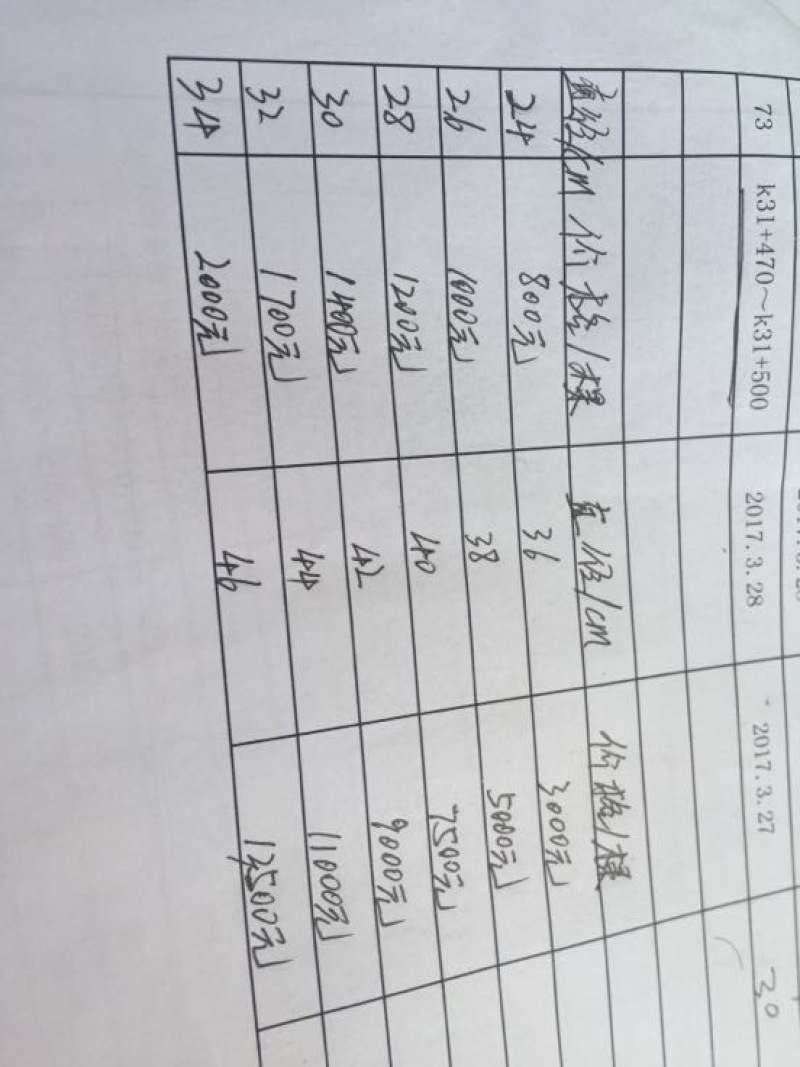 73 k31+470～k31+500 2017.3.28 2017.3.27 3.0
直径/cm 价格/棵 直径/cm 价格/棵
24 800元 36 3000元
26 1000元 38 5000元
28 1200元 40 7500元
30 1400元 42 9000元
32 1700元 44 11000元
34 2000元 46